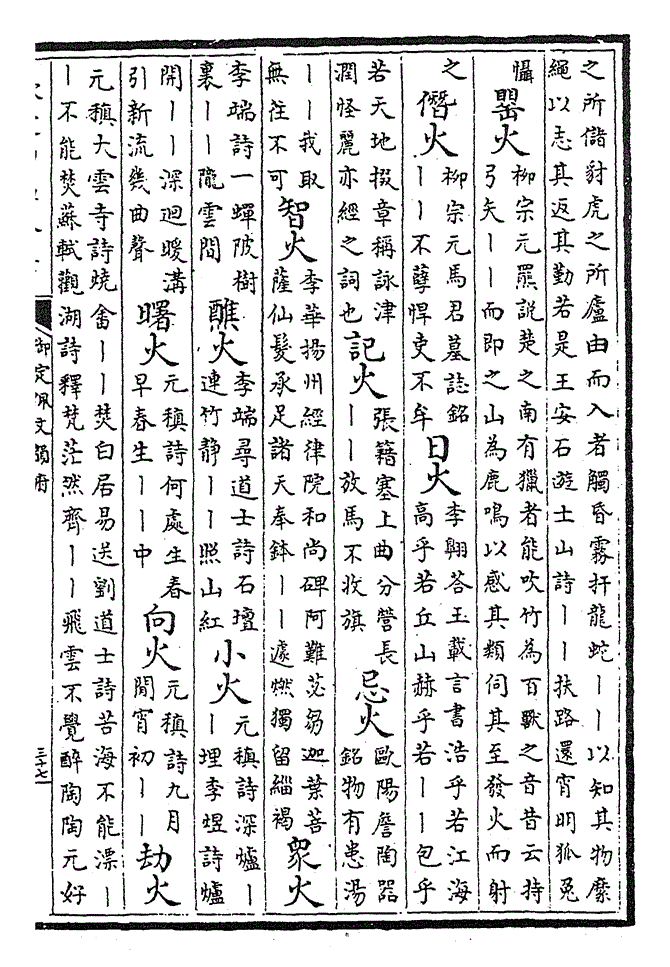 之所儲豺虎之所廬由而入者觸昏霧扞龍蛇——以知其物縻
繩以志其返其勤若是王安石遊士山詩——扶路還宵明狐兔
懾
罌火
柳宗元羆說楚之南有獵者能吹竹為百獸之音昔云持
弓矢——而即之山為鹿鳴以感其類伺其至發火而射
之
僭火
柳宗元馬君墓誌銘
——不孽悍吏不牟
日火
李翱答王載言書浩乎若江海
高乎若丘山赫乎若——包乎
若天地掇章稱詠津
潤怪麗亦經之詞也
記火
張籍塞上曲分營長
——放馬不收旗
忌火
歐陽詹陶器
銘物有患湯
——我取
無往不可
智火
李華揚州經律院和尚碑阿難苾芻迦葉菩
薩仙髮承足諸天奉鉢——遽燃獨留緇褐
衆火
李端詩一蟬陂樹
裏——隴雲間
醮火
李端尋道士詩石壇
連竹靜——照山紅
小火
元稹詩深爐—
—埋李煜詩爐
開——深迴暖溝
引新流幾曲聲
曙火
元稹詩何處生春
早春生——中
向火
元稹詩九月
閒宵初——
劫火
元稹大雲寺詩燒畬——焚白居易送劉道士詩苦海不能漂—
—不能焚蘇軾觀湖詩釋梵茫然齊——飛雲不覺醉陶陶元好
御定佩文韻府
三十七